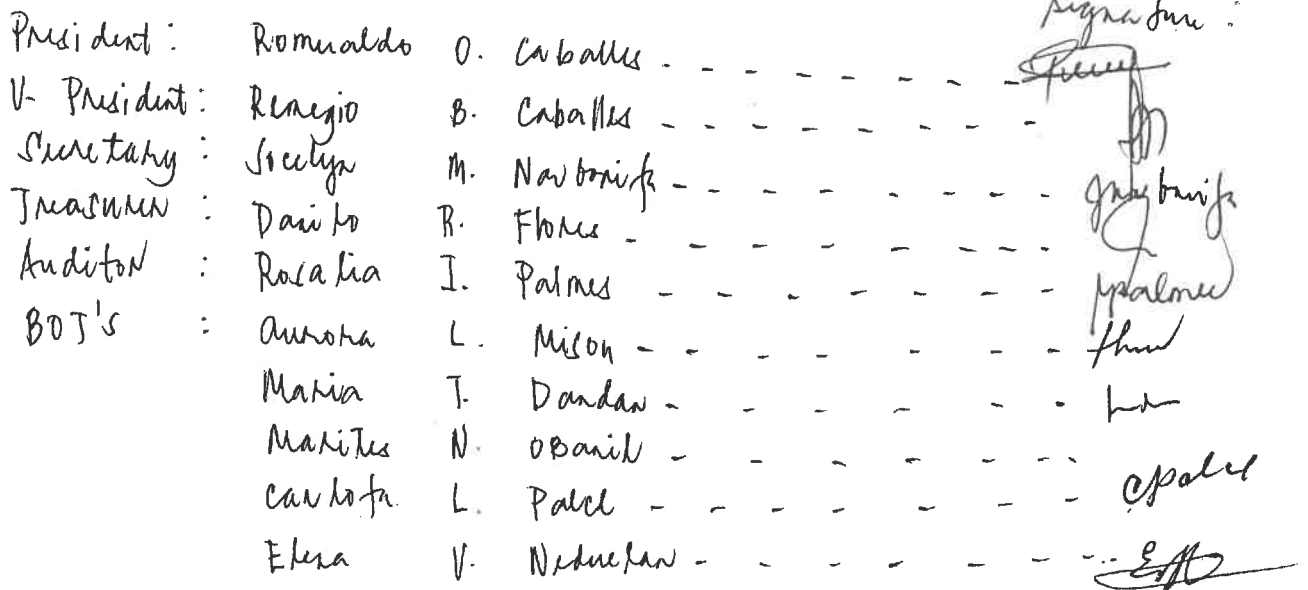 Signature :
President : Romualdo O. Caballes
V- President : Remegio B. Caballes
Secretary : Jocelyn M. Navbonifa
Treasurer : Danilo R. Flores
Auditor : Rosalia I. Palmes
BOT's : Aurora L. Mison
Maria T. Dandan
Marites N. OBanil
Carlota L. Palel
Elena V. Neduelan